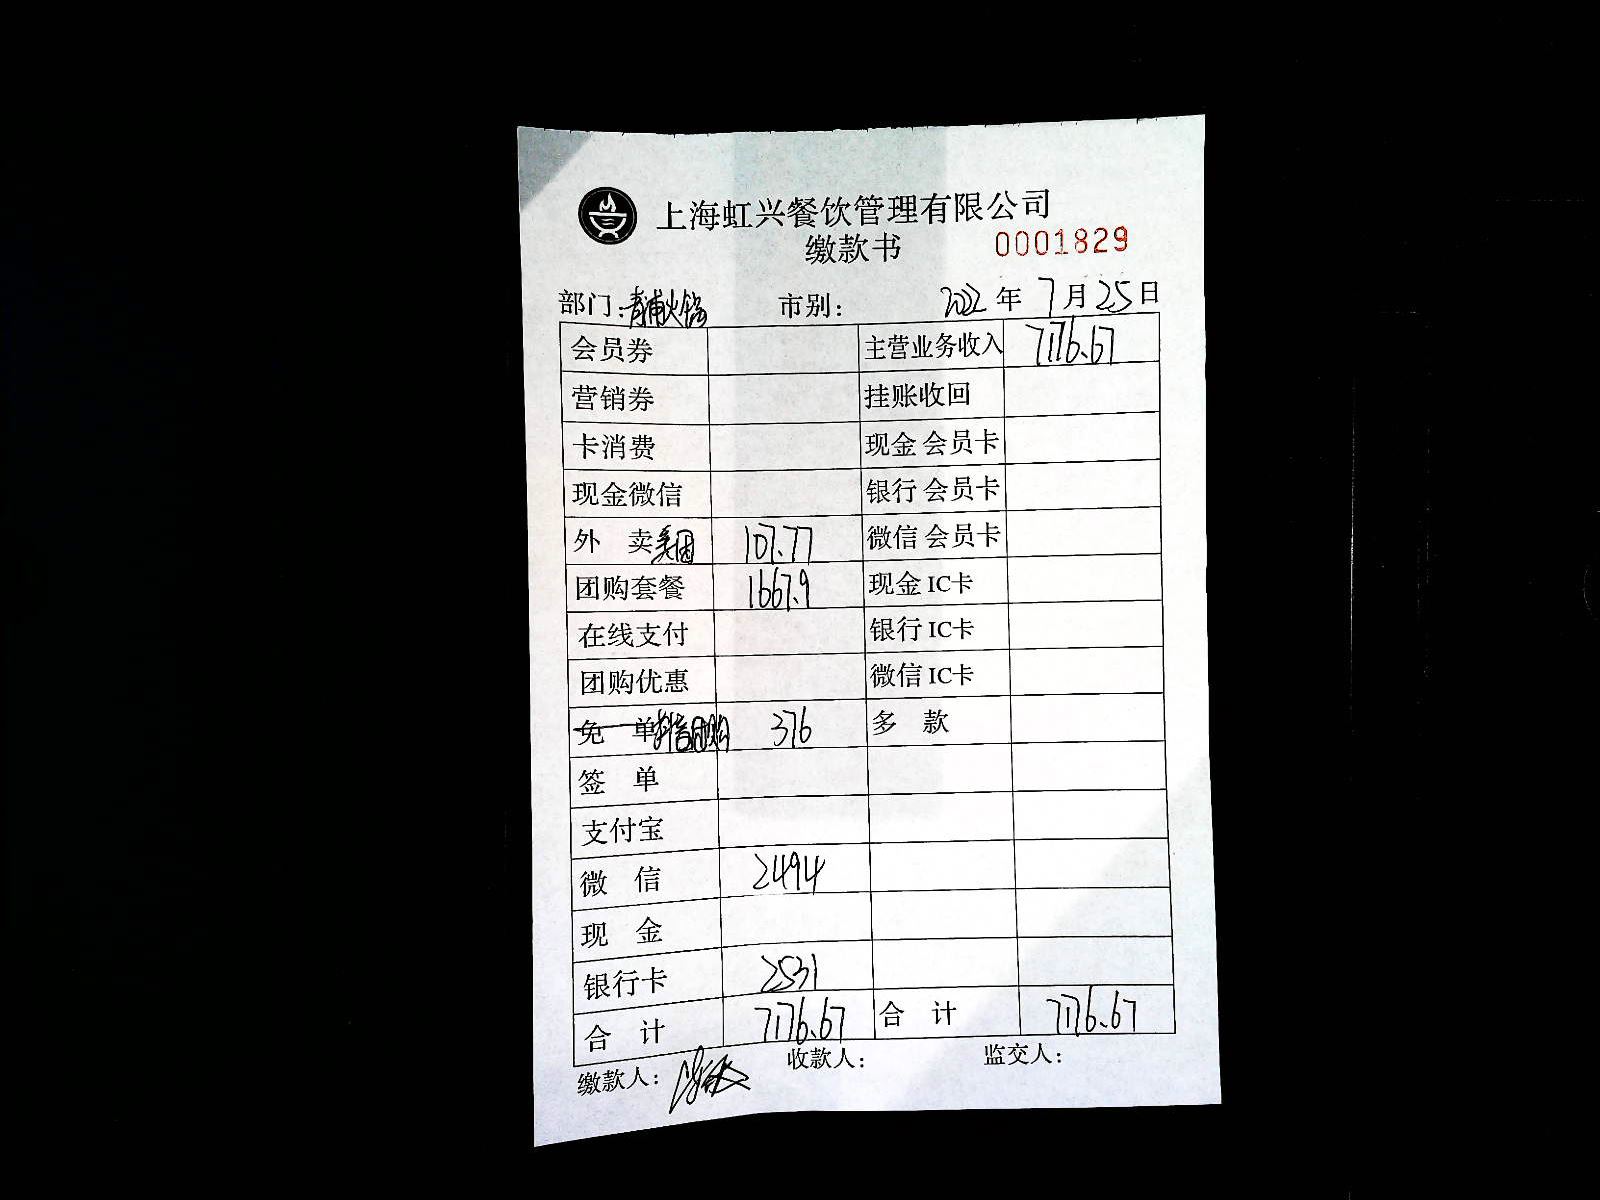 上海虹兴餐饮管理有限公司
缴款书 0001829
部门:青浦火锅 市别: 2022年7月25日
会员券 主营业务收入 7176.67
营销券 挂账收回
卡消费 现金 会员卡
现金微信 银行 会员卡
外 卖美团 107.77 微信 会员卡
团购套餐 1667.9 现金 IC卡
在线支付 银行 IC卡
团购优惠 微信 IC卡
免 单抖音团购 376 多 款
签 单
支付宝
微 信 2494
现 金
银行卡 2531
合 计 7176.67 合 计 7176.67
缴款人: 收款人: 监交人: